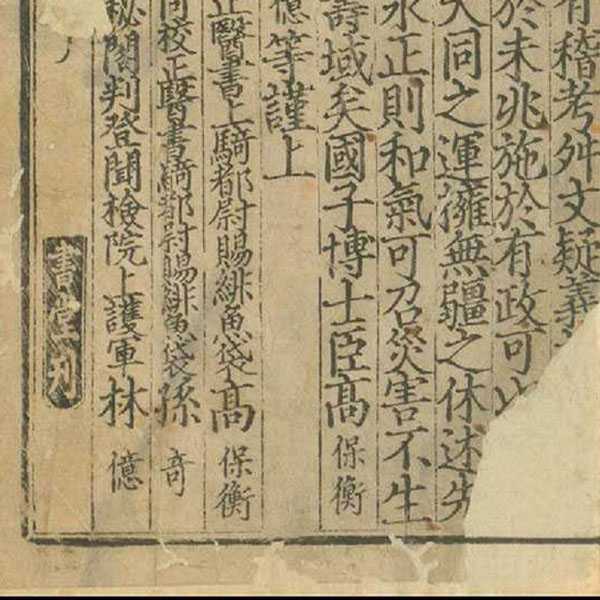 有稽考舛文疑義
於未兆施於有政可
大同之運擁無疆之休述先
永正則和氣可召災害不生
壽域矣國子博士臣高保衡
億等謹上
正醫書上騎都尉賜緋魚袋高保衡
同校正醫書騎都尉賜緋魚袋孫奇
秘閣判登聞檢院上護軍林億
書堂刊